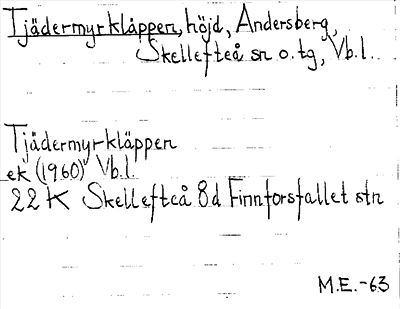 Tjädermyrkläppen, höjd, Andersberg,
Skellefteå sn o. tg, Vb.l.
Tjädermyrkläppen
ek (1960) Vb.l.
22 K Skellefteå 8d Finnforsfallet stn
M.E.-63